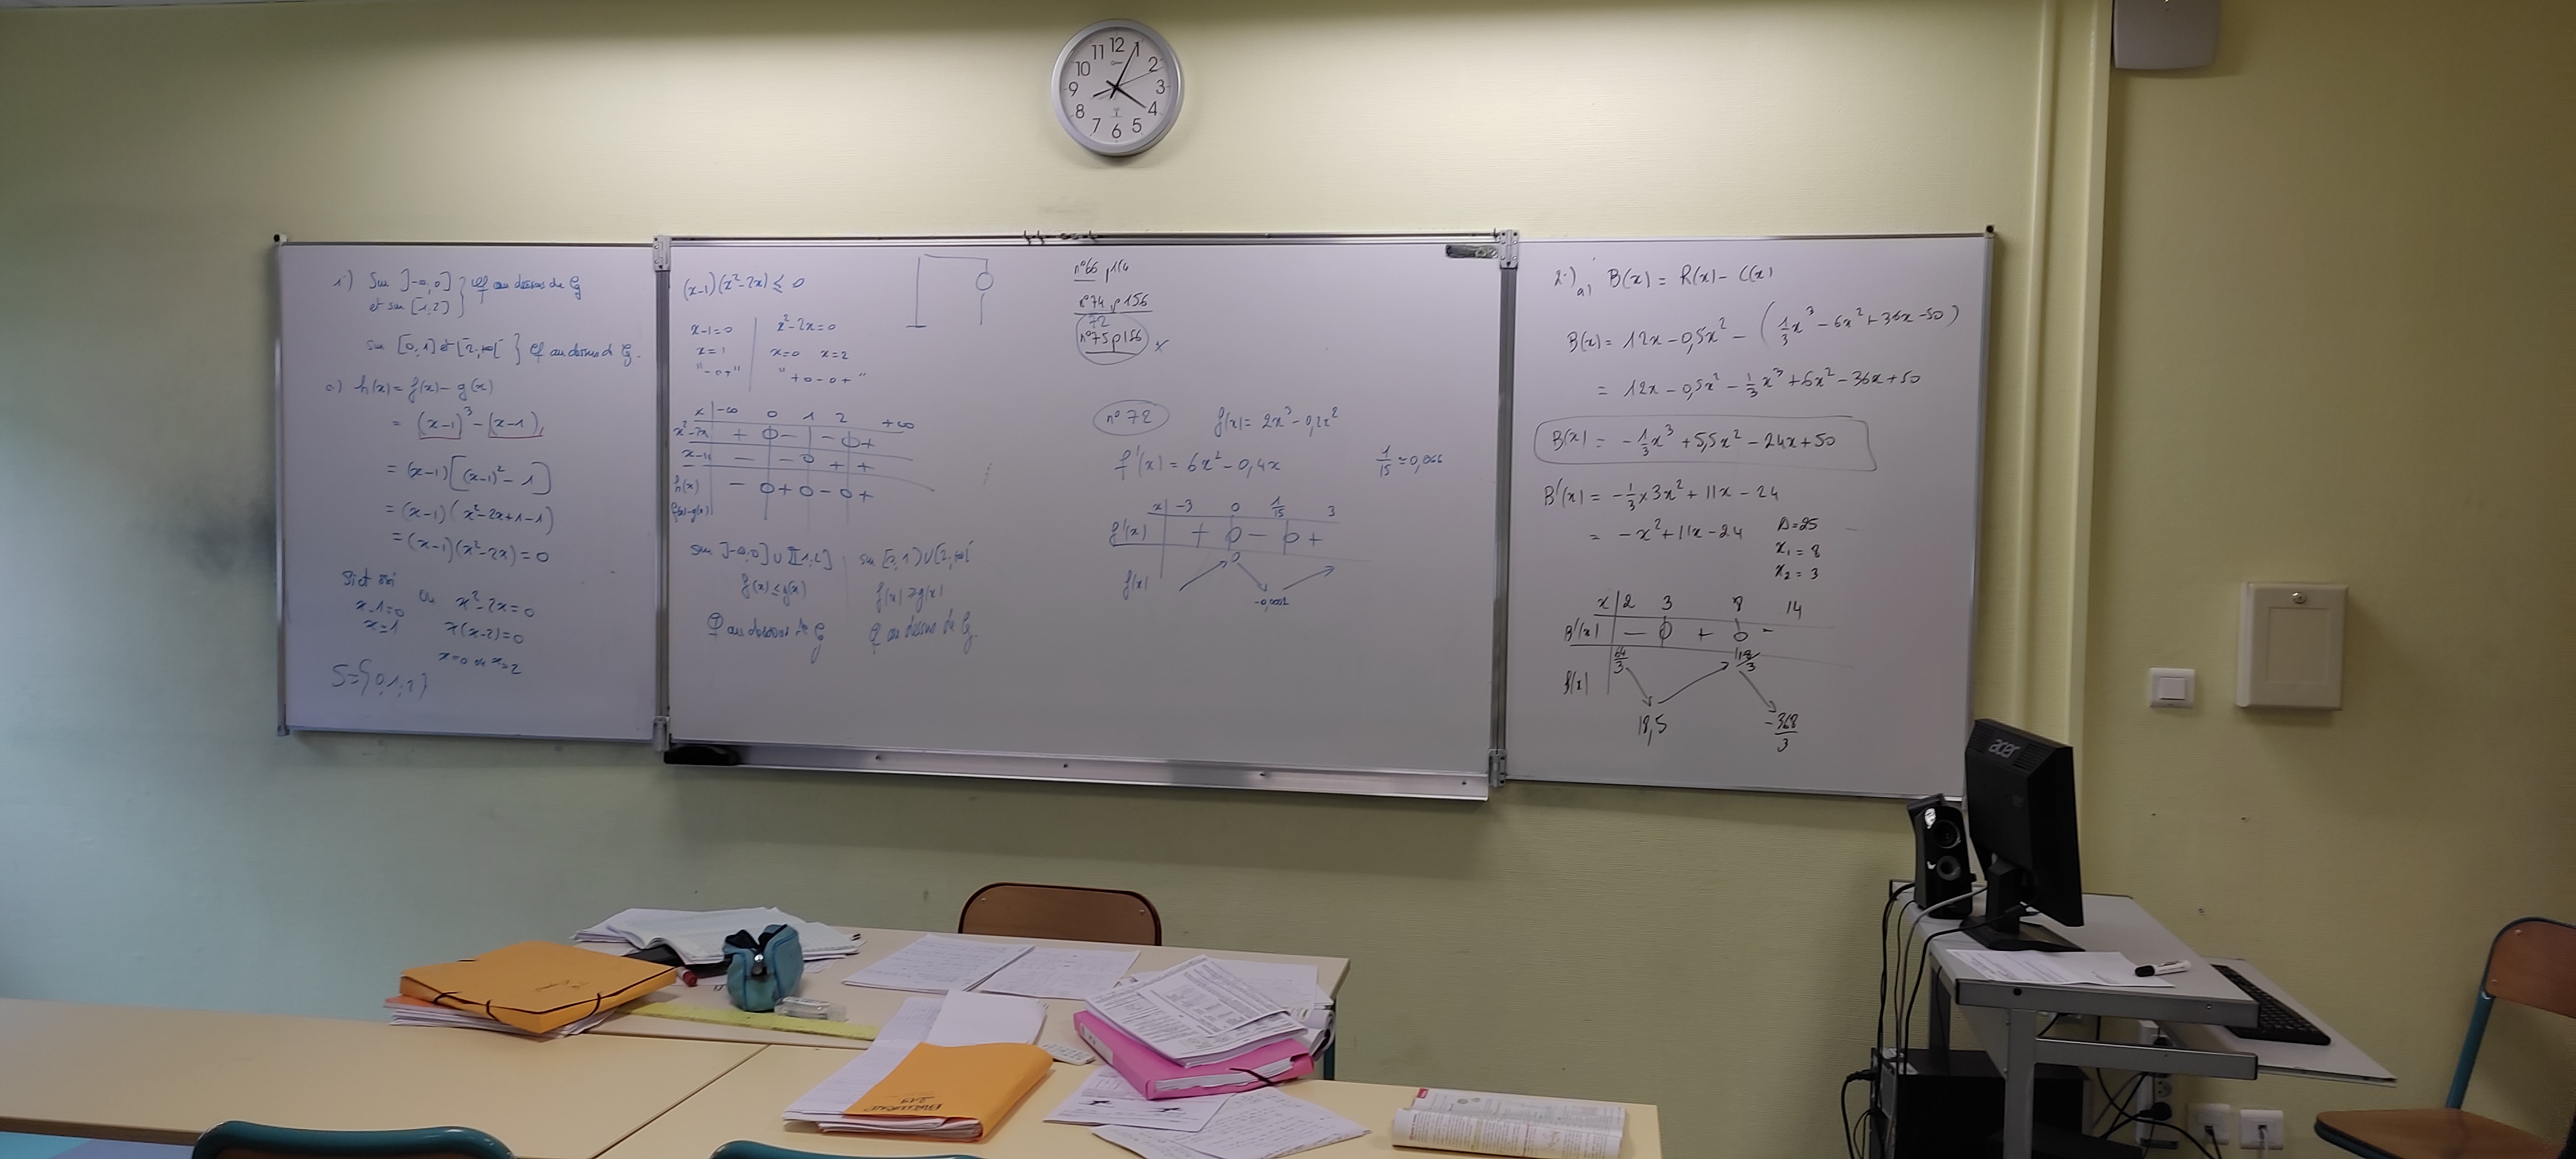 11 12 1
10 2
9 3
8 4
7 6 5
1°) Sur ]-∞,0]
et sur [1,2]
au dessous de Cg
sur [0,1] et [2,+∞[ } Cf au dessus de Cg.
c) h(x) = f(x) - g(x)
= (x-1)³ - (x-1)
= (x-1)[(x-1)² - 1]
= (x-1)(x²-2x+1-1)
= (x-1)(x²-2x) = 0
x-1=0 ou x²-2x=0
x=1 x(x-2)=0
x=0 ou x=2
S={0,1,2}
(x-1)(x²-2x) ≤ 0
x-1=0 | x²-2x=0
x=1 | x=0 x=2
"-0+" | "+0-0+"
x | -∞ 0 1 2 +∞
x²-2x | + 0 - | - 0 +
x-1 | - - 0 + +
h(x) | - 0 + 0 - 0 +
f(x)-g(x)
sur ]-∞,0] ∪ [1,2] | sur [0,1] ∪ [2,+∞[
f(x) ≤ g(x) | f(x) ≥ g(x)
au dessous de Cg | Cf au dessus de Cg.
n°66
n°74 p156
72
n°75 p156 x
n°72 f(x) = 2x³ - 0,2x²
f'(x) = 6x² - 0,4x 1/15 ≈ 0,066
x | -3 0 1/15 3
f'(x) + 0 - 0 +
0
f(x)
2°) a) B(x) = R(x) - C(x)
B(x) = 12x - 0,5x² - (1/3x³ - 6x² + 36x - 50)
= 12x - 0,5x² - 1/3x³ + 6x² - 36x + 50
B(x) = -1/3x³ + 5,5x² - 24x + 50
B'(x) = -1/3 × 3x² + 11x - 24
= -x² + 11x - 24 Δ=25
x₁ = 8
x₂ = 3
x | 2 3 8 14
B'(x) | - 0 + 0 -
64/3 118/3
f(x)
18,5 -368/3
acer